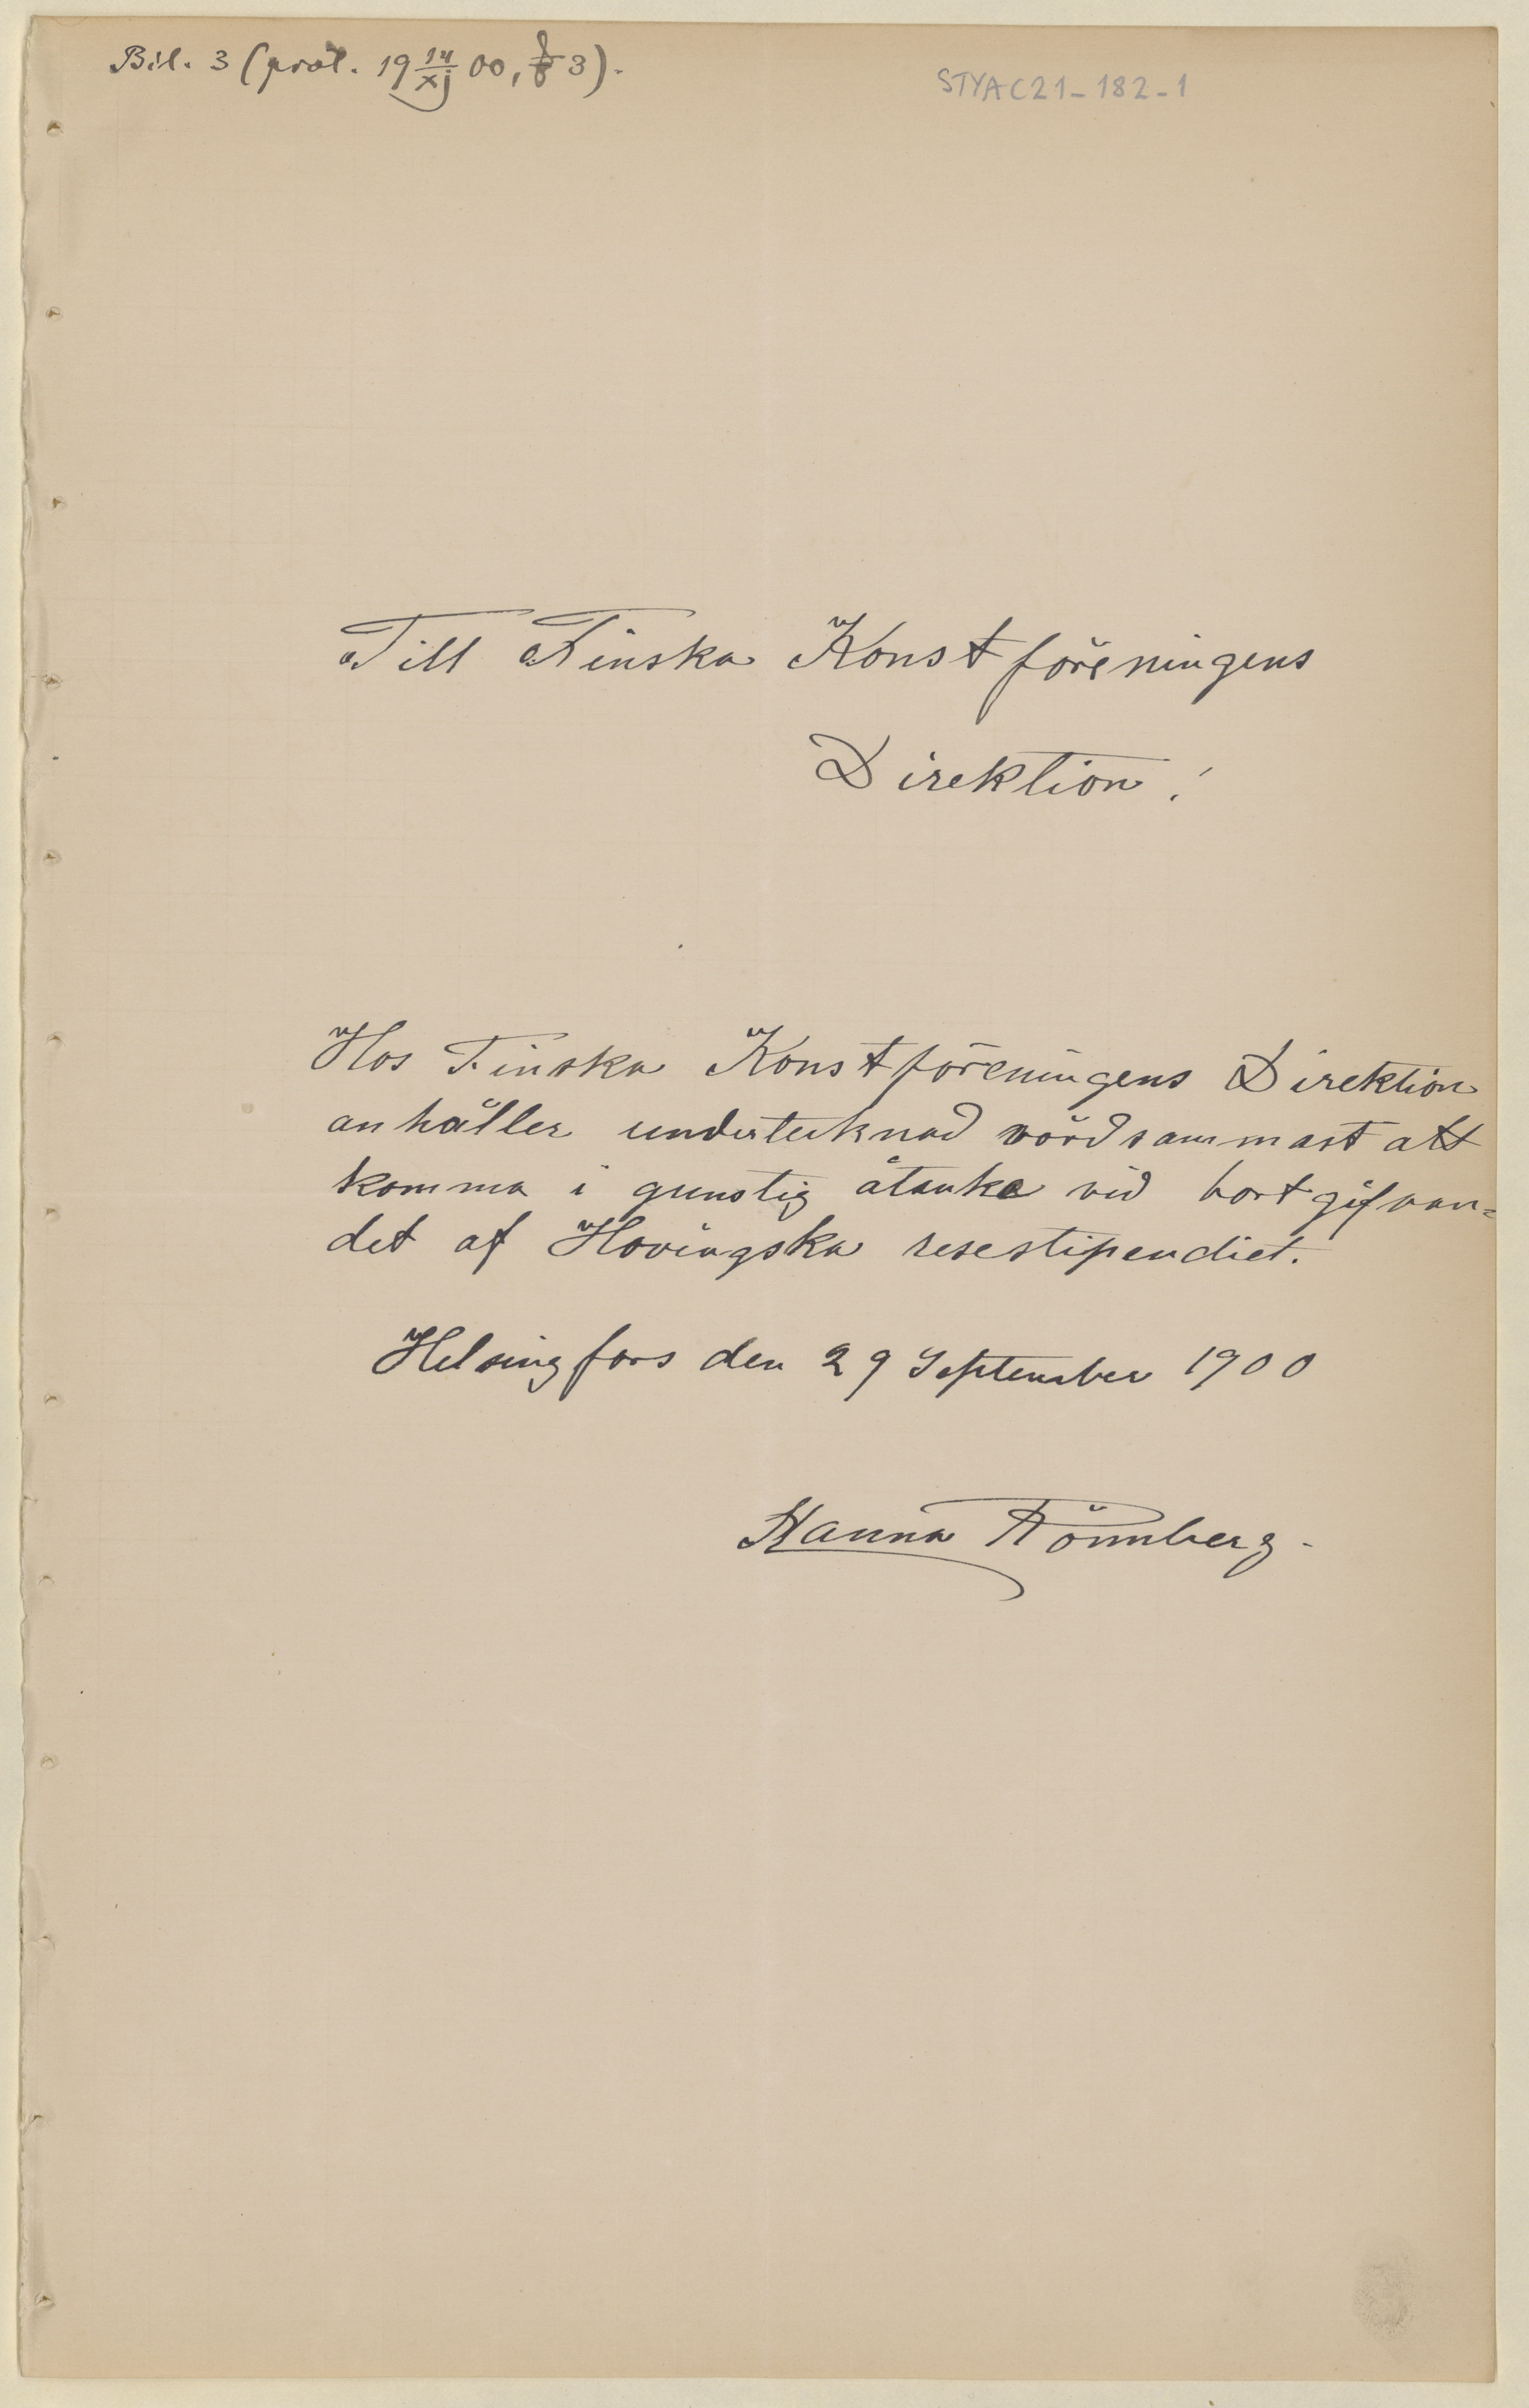 Bil. 3 (prot. 19 14/XI 00, § 3).
STYAC21-182-1
Till Finska Konstföreningens
Direktion!
Hos Finska Konstföreningens Direktion
anhåller undertecknad vördsammast att
komma i gunstig åtanke vid bortgifvan=
det af Hovingska resestipendiet.
Helsingfors den 29 September 1900
Hanna Rönnberg.